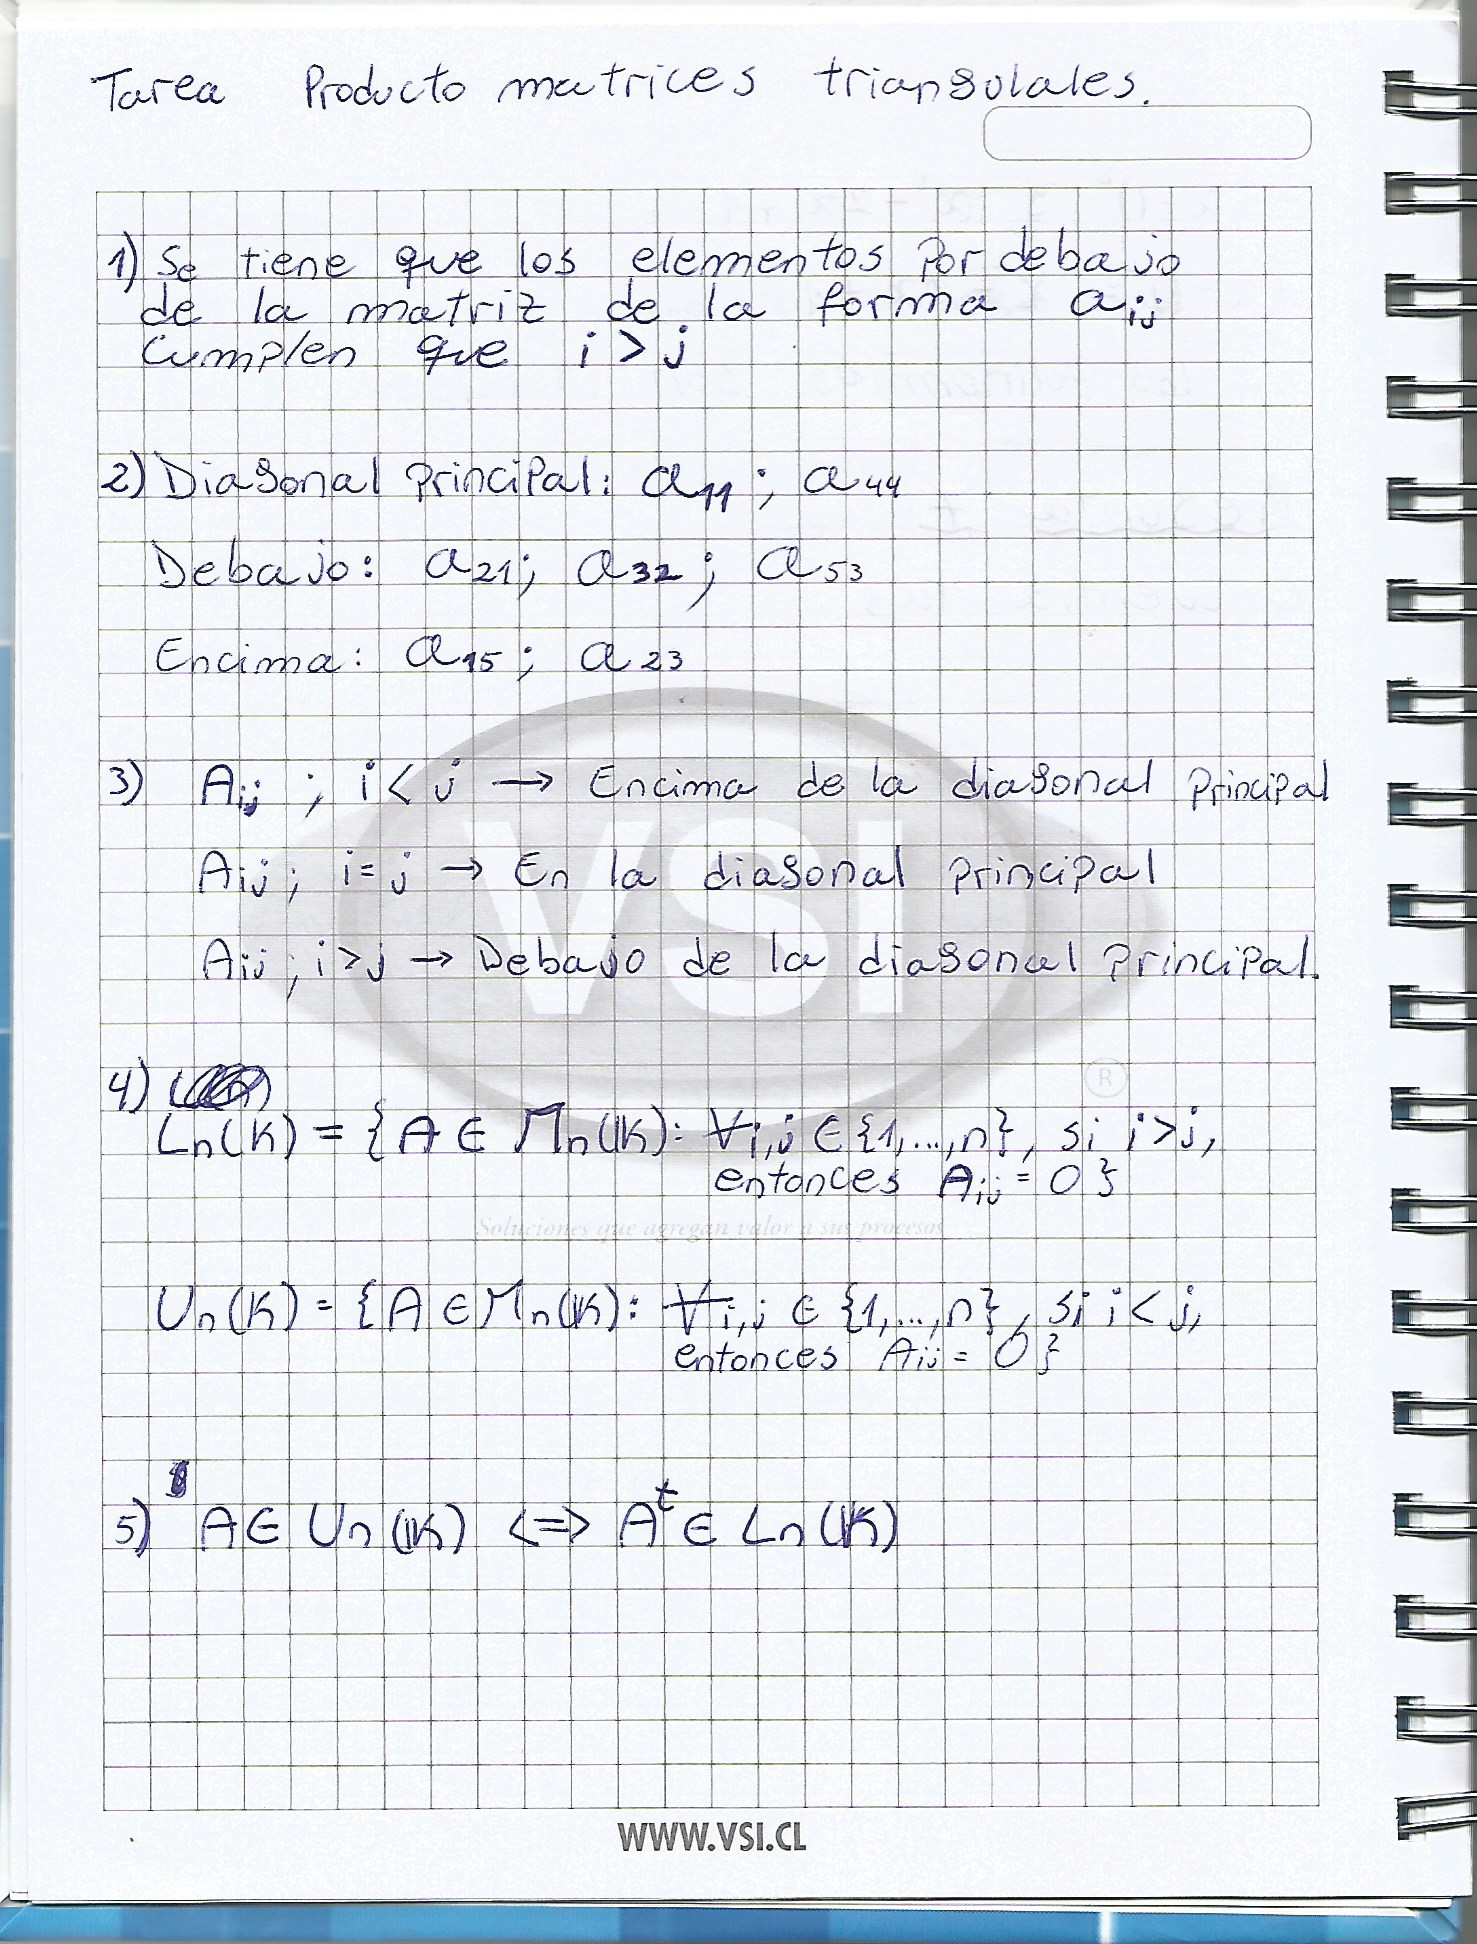 Tarea Producto matrices triangulales.
1) Se tiene que los elementos por debajo
de la matriz de la forma aij
Cumplen que i > j
2) Diagonal principal: a11 ; a44
Debajo: a21; a32; a53
Encima: a15; a23
3) Aij ; i < j → Encima de la diagonal principal
Aij ; i = j → En la diagonal principal
Aij ; i > j → Debajo de la diagonal principal.
4)
Ln(K) = {A ∈ Mn(K): ∀i,j ∈ {1,...,n}, si i>j,
entonces Aij = 0}
Soluciones que agregan valor a sus procesos
Un(K) = {A ∈ Mn(K): ∀i,j ∈ {1,...,n}, si i < j,
entonces Aij = 0}
5) A ∈ Un(K) <=> A^t ∈ Ln(K)
VSI
®
WWW.VSI.CL